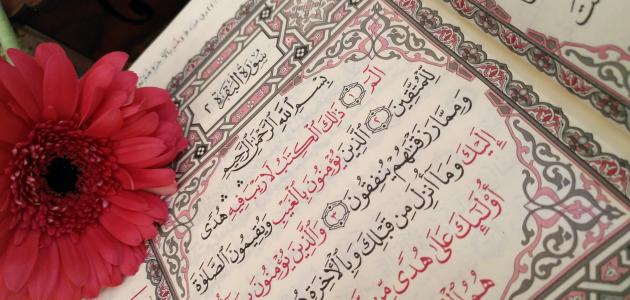 سُورَةُ البَقَرَةِ ٢
بِسْمِ اللَّهِ الرَّحْمَٰنِ الرَّحِيمِ
الٓمٓ ١ ذَٰلِكَ ٱلْكِتَٰبُ لَا رَيْبَ فِيهِ هُدًى
لِّلْمُتَّقِينَ ٢ ٱلَّذِينَ يُؤْمِنُونَ بِٱلْغَيْبِ وَيُقِيمُونَ ٱلصَّلَوٰةَ
وَمِمَّا رَزَقْنَٰهُمْ يُنفِقُونَ ٣ وَٱلَّذِينَ يُؤْمِنُونَ
إِلَيْكَ وَمَآ أُنزِلَ مِن قَبْلِكَ وَبِٱلْءَاخِرَةِ
أُو۟لَٰٓئِكَ عَلَىٰ هُدًى مِّن
هُمُ